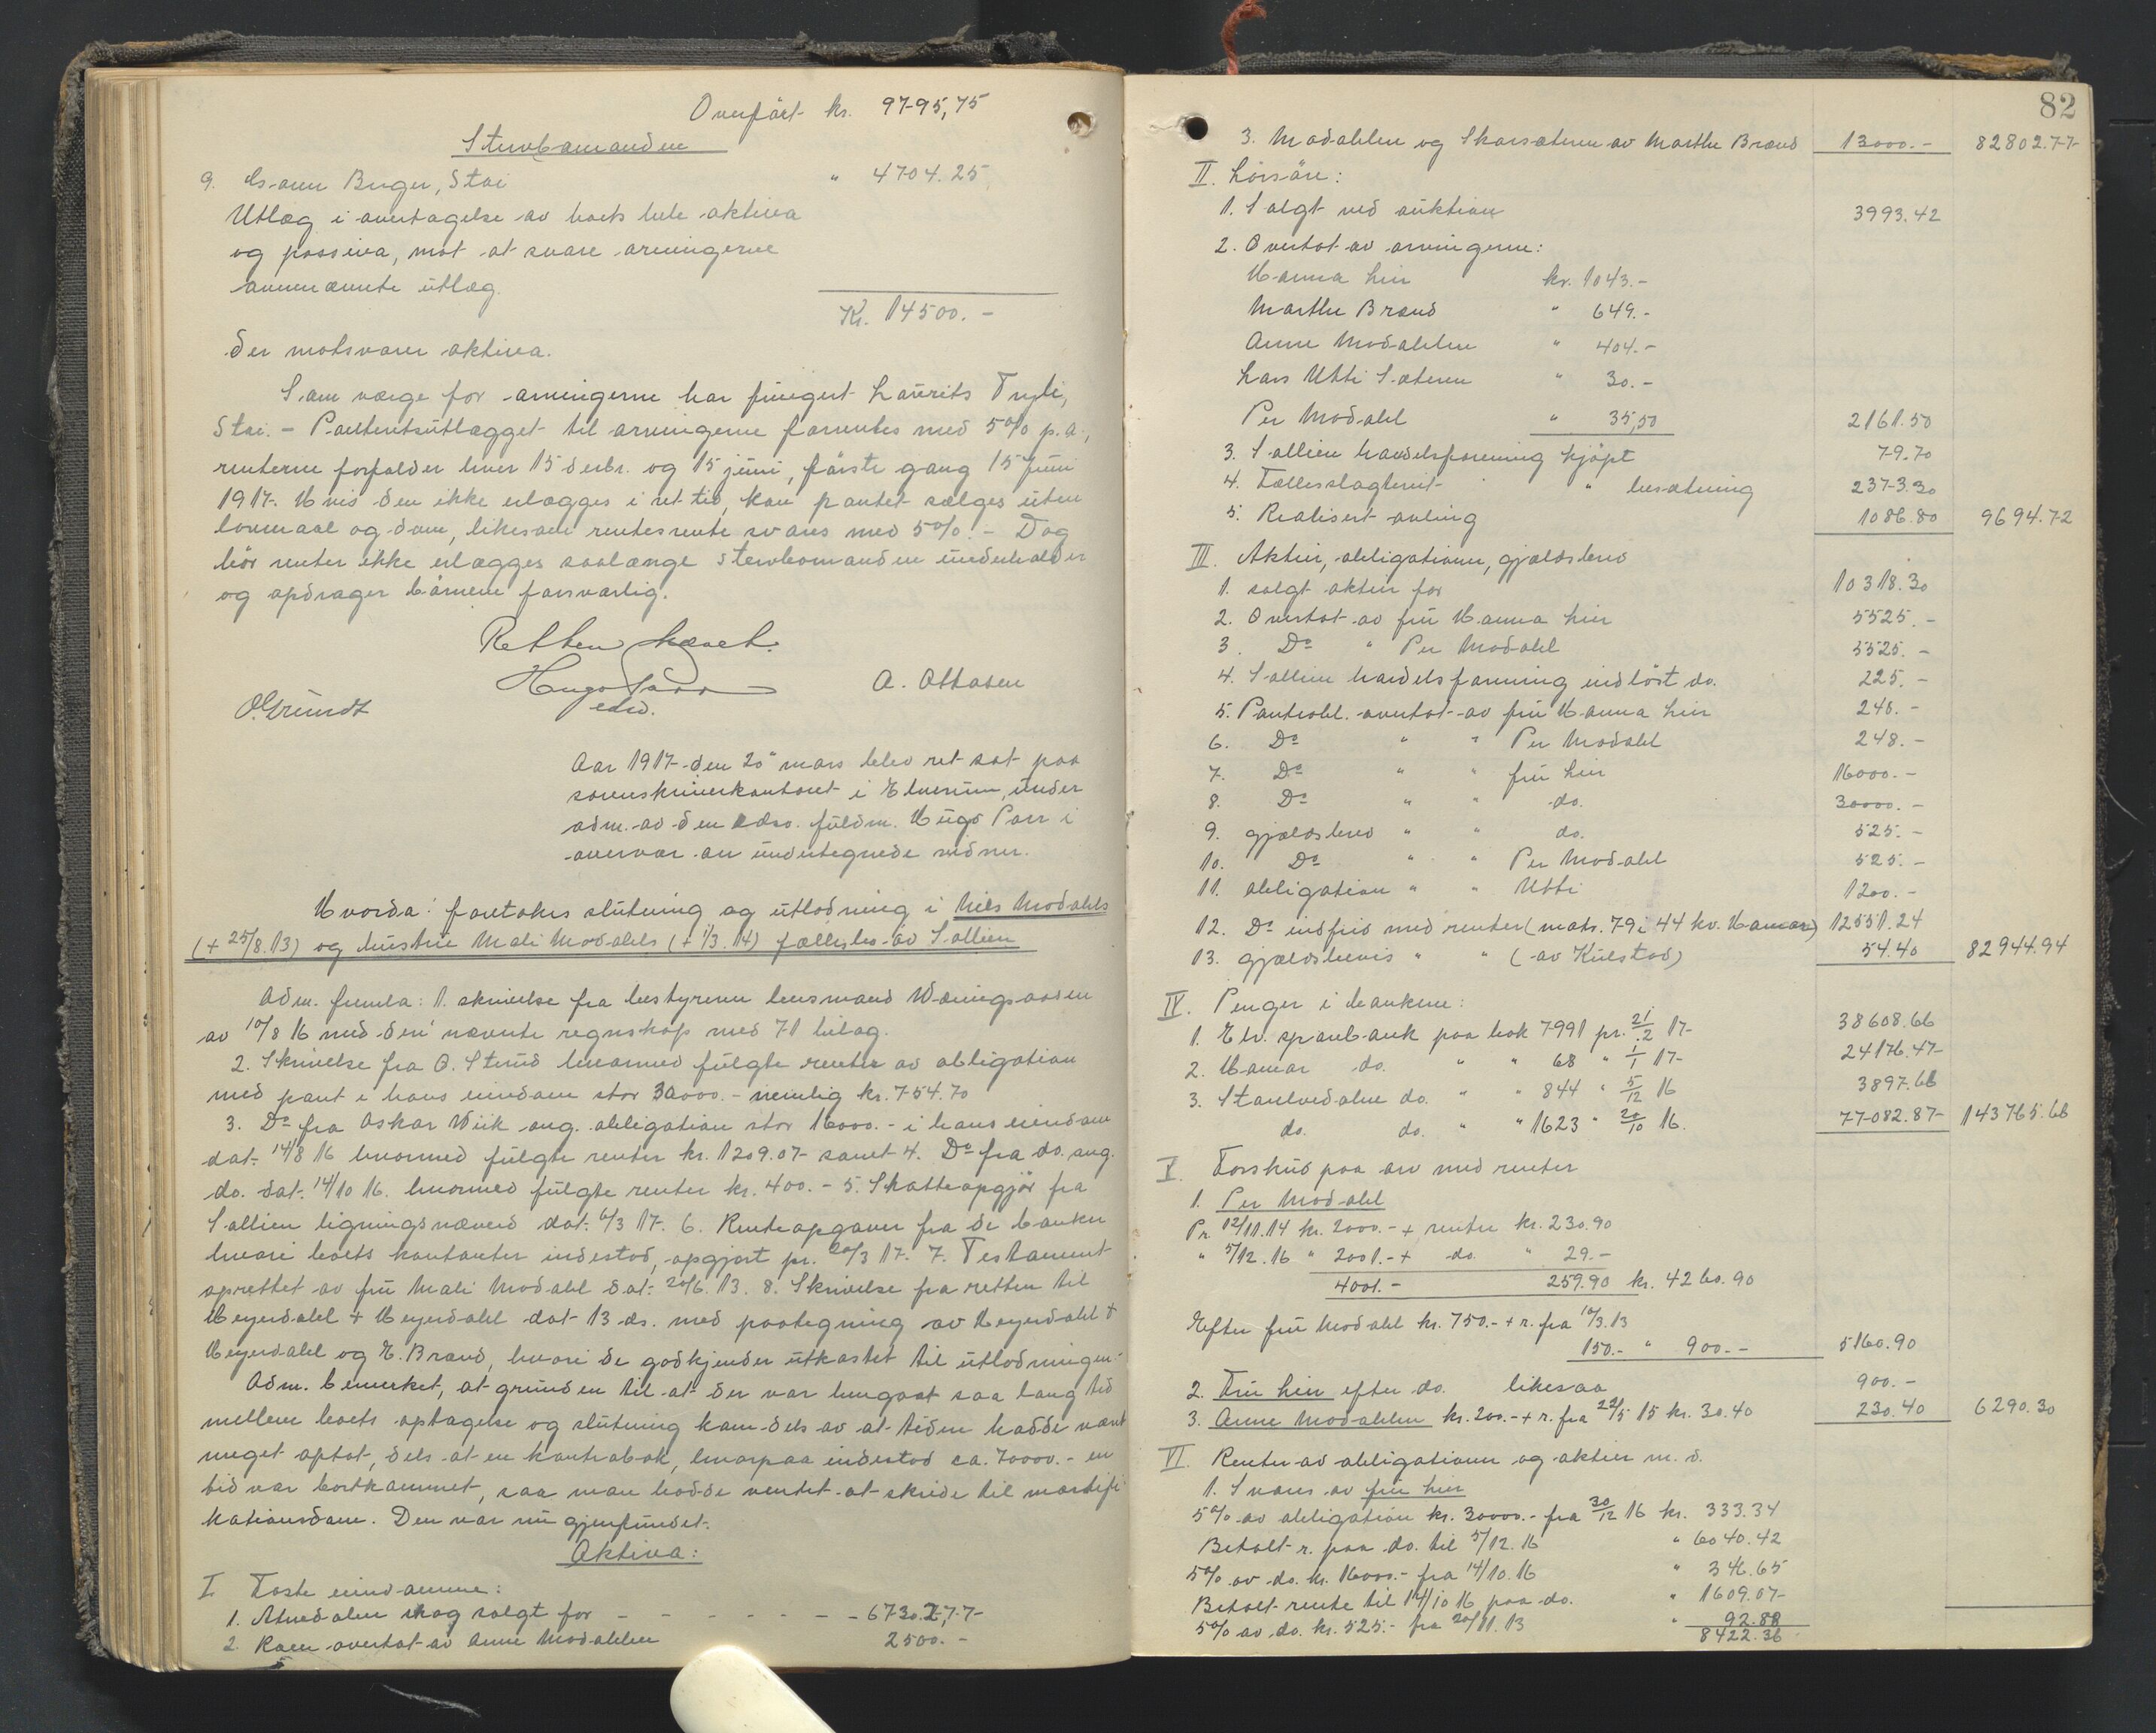 Overført kr. 9795,75
Stervbomanden
9. Esaum Berger, Stai " 4704.25
Utlæg i overtagelse av boets hele aktiva
og passiva, mot at svare arvingerne
ovennævnte utlæg.
Kr. 14500.-
der motsvarer aktiva.
Som værge for arvingerne har fungert Laurits Tryli,
Stai. - Panteretsutlægget til arvingerne forrentes med 5% p.a.,
renterne forfalder hver 15 decbr. og 15 juni, første gang 15 juni
1917. Hvis den ikke erlægges i ret tid, kan pantet sælges uten
lovmaal og dom, likesom rentesrente svares med 5%. - Dog
bør renter ikke erlægges saalænge stervbomanden underholder
og opdrager børnene forsvarlig.
Retten hævet.
Hugo Parr
edsv.
O. Grundt
A. Ottosen
Aar 1917 den 20de mars blev ret sat paa
sorenskriverkontoret i Elverum, under
adm. av den edsv. fuldm. Hugo Parr i
overvær av undertegnede vidner.
Hvorda: foretokes slutning og utlodning i Nils Modahls
(+ 25/8.13) og hustru Mali Modahls (+ 1/3.14) fællesbo av Sollien
Adm. fremla: 1. skrivelse fra bestyreren lensmand Wæringsaasen
av 10/8 16 med deri nævnte regnskap med 71 bilag.
2. Skrivelse fra O. Strud hvormed fulgte renter av obligation
med pant i hans eiendom stor 30000.- nemlig kr. 754.70
3. Do fra Oskar Wiik ang. obligation stor 16000.- i hans eiendom
dat. 14/8 16 hvormed fulgte renter kr. 1209.07 samt 4. Do fra do. ang.
do. dat. 14/10 16. hvormed fulgte renter kr. 400.- 5. Skatteopgjør fra
Sollien ligningsnævnd dat. 6/3 17. 6. Renteopgaver fra de banker
hvori boets kontanter indestod, opgjort pr. 20/3 17. 7. Testament
oprettet av fru Mali Modahl dat. 20/6.13. 8. Skrivelse fra retten til
Heyerdahl + Heyerdahl dat 13 ds. med paategning av Heyerdahl +
Heyerdahl og E. Brænd, hvori de godkjender utkastet til utlodningen.
Adm. bemerket, at grunden til at der var hengaat saa lang tid
mellem boets optagelse og slutning kom dels av at tiden hadde været
meget optat, dels at en kontrabok, hvorpaa indestod ca. 70000.- en
tid var bortkommet, saa man hadde ventet at skride til mortifi-
kationsdom. Den var nu gjenfundet.
Aktiva:
I Faste eiendomme:
1. Atnedalen skog solgt for - - - - - - - 67302,77
2. Roen overtat av Anne Modahlen 2500.-
82
3. Modahlen og Skarsæteren av Marthe Brænd 13000.- 82802.77
II. Løsøre:
1. Solgt ved auktion 3993.42
2. Overtat av arvingerne:
Hanna Lien kr. 1043.-
Marthe Brænd " 649.-
Anne Modahlen " 404.-
Lars Utti Sæteren " 30.-
Per Modahl " 35,50 2161.50
3. Sollien handelsforening kjøpt 79.70
4. Fællesslagteriet " besætning 2373.30
5. Realisert avling 1086.80 9694.72
III. Aktier, obligationer, gjældsbrev
1. solgt aktier for 10318.30
2. Overtat av fru Hanna Lien 5525.-
3. Do " Per Modahl 5525.-
4. Sollien handelsforening indløst do. 225.-
5. Pantobl. overtat av fru Hanna Lien 248.-
6. Do " " Per Modahl 248.-
7. Do " " fru Lien 16000.-
8. Do " " do. 30000.-
9. gjældsbrev " " do. 525.-
10. Do " " Per Modahl 525.-
11. obligation " " Utti 1200.-
12. Do indfrid med renter (matr. 79 i 44 kv. Hamar) 12551.24
13. gjældsbevis " " (av Kulstad) 54.40 82944.94
IV. Penger i bankene:
1. Elv. sparebank paa bok 7991 pr. 21/2 17 38608.66
2. Hamar do. " " 68 " 1/1 17 24176.47
3. Storelvedalen do. " " 844 " 5/12 16 3897.66
do. do. " " 1623 " 20/10 16. 77082.87 143765.66
V. Forskud paa arv med renter
1. Per Modahl
Pr. 12/11.14 kr. 2000.- + renter kr. 230.90
" 5/12.16 " 2001.- + do. " 29.-
4001.- 259.90 kr. 4260.90
Efter fru Modahl kr. 750.- + r. fra 10/3.13
150.- " 900.- 5160.90
2. Fru Lien efter do. likesaa 900.-
3. Anne Modahlen kr. 200.- + r. fra 22/5 15 kr. 30.40 230.40 6290.30
VI. Renter av obligationer og aktier m.v.
1. Svares av fru Lien
5% av obligation kr. 30000.- fra 30/12 16 kr. 333.34
Betalt r. paa do. til 5/12.16 " 6040.42
5% av do. kr. 16000.- fra 14/10.16 " 346.65
Betalt rente til 14/10 16 paa do. " 1609.07
5% av do. kr. 525.- fra 20/11.13 " 92.88
8422.36